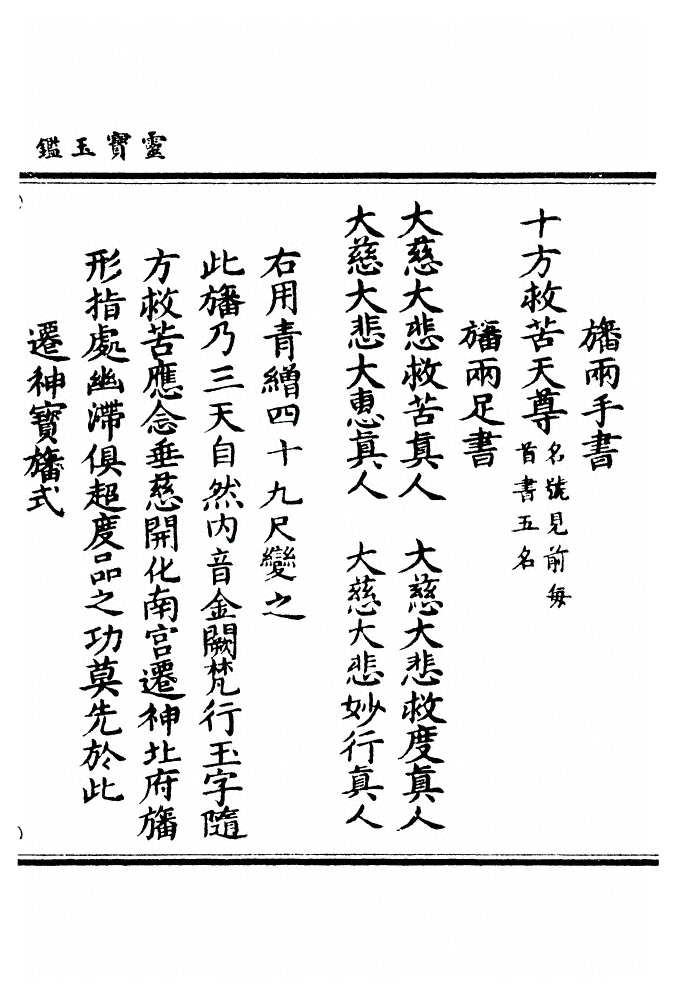 靈寶玉鑑
旛兩手書
十方救苦天尊 名號見前每首書五名
旛兩足書
大慈大悲救苦真人 大慈大悲救度真人
大慈大悲大惠真人 大慈大悲妙行真人
右用青繒四十九尺變之
此旛乃三天自然內音金闕梵行玉字隨
方救苦應念垂慈開化南宮遷神北府旛
形指處幽滯俱超度品之功莫先於此
遷神寶旛式